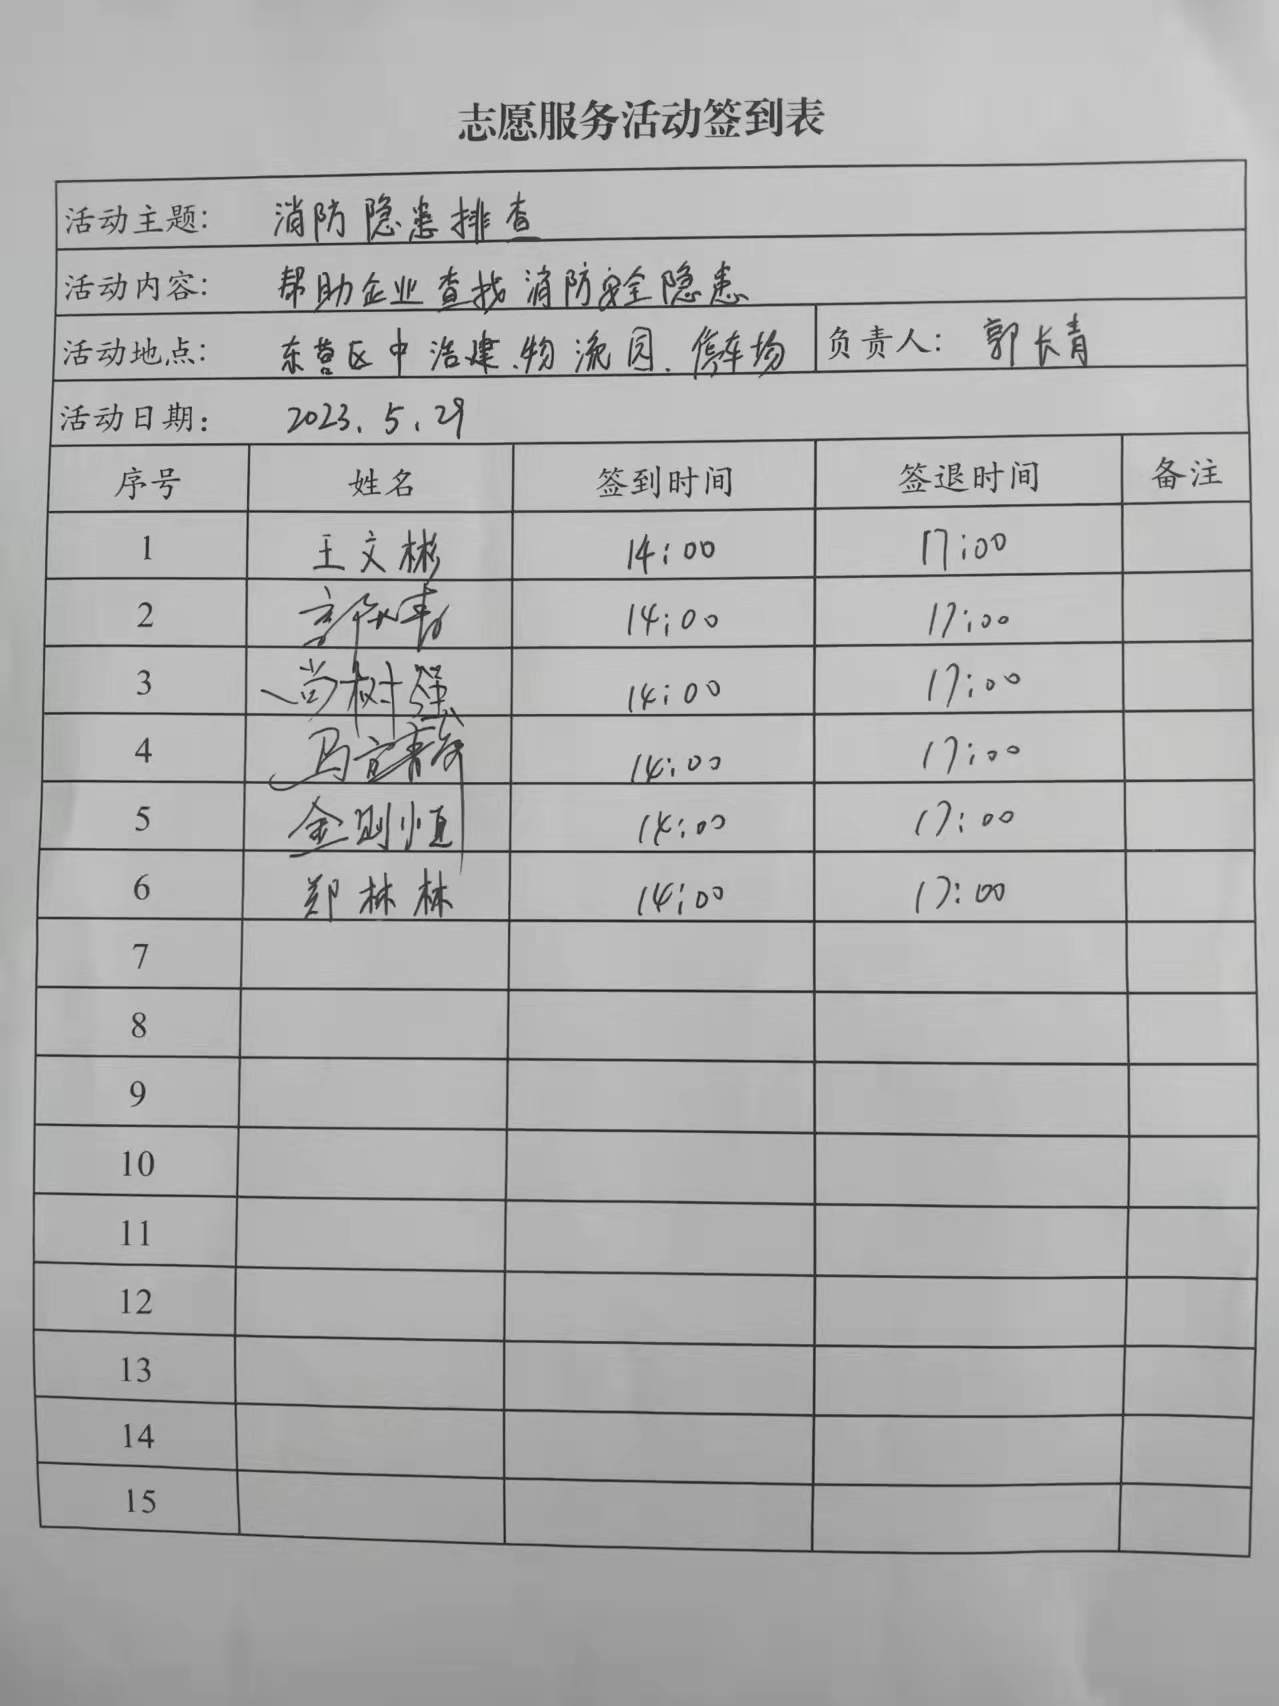 志愿服务活动签到表
活动主题: 消防隐患排查
活动内容: 帮助企业查找消防安全隐患
活动地点: 东营区中浩建、物流园、停车场 负责人: 郭长青
活动日期: 2023.5.29
序号 姓名 签到时间 签退时间 备注
1 王文彬 14:00 17:00
2 14:00 17:00
3 尚树强 14:00 17:00
4 14:00 17:00
5 金则恒 14:00 17:00
6 郑林林 14:00 17:00
7
8
9
10
11
12
13
14
15